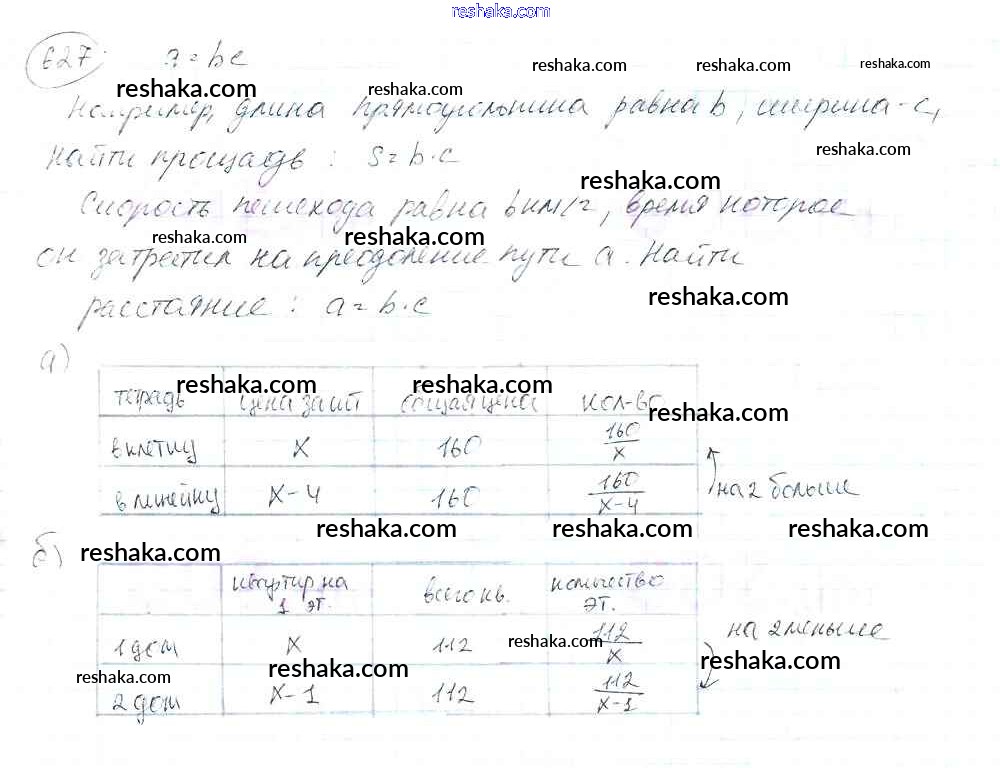 reshaka.com
627. a = bc
reshaka.com reshaka.com reshaka.com
reshaka.com reshaka.com
Например, длина прямоугольника равна b, ширина - c,
reshaka.com
Найти площадь: S = b · c
reshaka.com
Скорость пешехода равна b км/ч, время которое
reshaka.com reshaka.com
он затратил на преодоление пути a. Найти
reshaka.com
расстояние: a = b · c
а)
reshaka.com reshaka.com
тетрадь цена за шт общая цена кол-во
reshaka.com
в клетку x 160 160/x
в линейку x-4 160 160/(x-4) на 2 больше
reshaka.com reshaka.com reshaka.com
б) reshaka.com
квартир на 1 эт. всего кв. количество эт.
1 дом x 112 112/x на 2 меньше
reshaka.com
reshaka.com reshaka.com reshaka.com
2 дом x-1 112 112/(x-1)